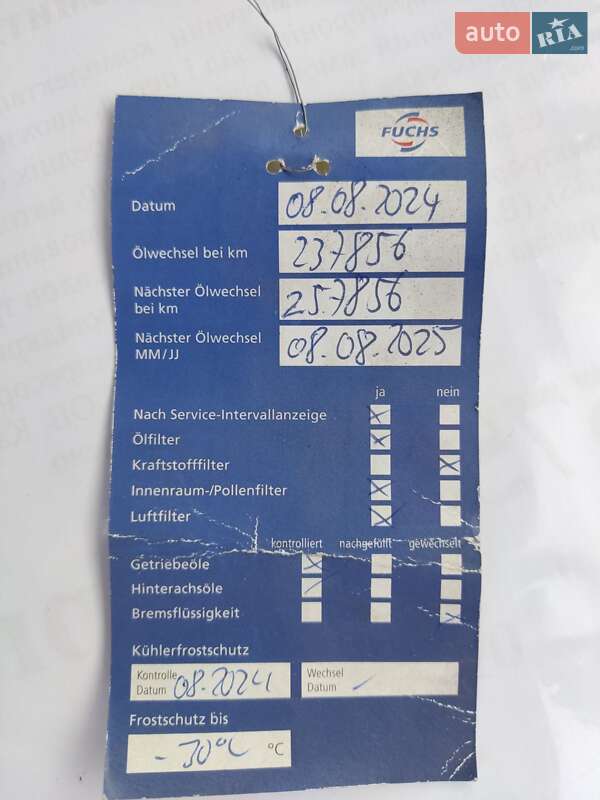 auto RIA .com
FUCHS
Datum 08.08.2024
Ölwechsel bei km 237856
Nächster Ölwechsel
bei km 257856
Nächster Ölwechsel
MM/JJ 08.08.2025
ja nein
Nach Service-Intervallanzeige
Ölfilter
Kraftstofffilter
Innenraum-/Pollenfilter
Luftfilter
kontrolliert nachgefüllt gewechselt
Getriebeöle
Hinterachsöle
Bremsflüssigkeit
Kühlerfrostschutz
Kontrolle
Datum 08.2024
Wechsel
Datum
Frostschutz bis
-30°C °C